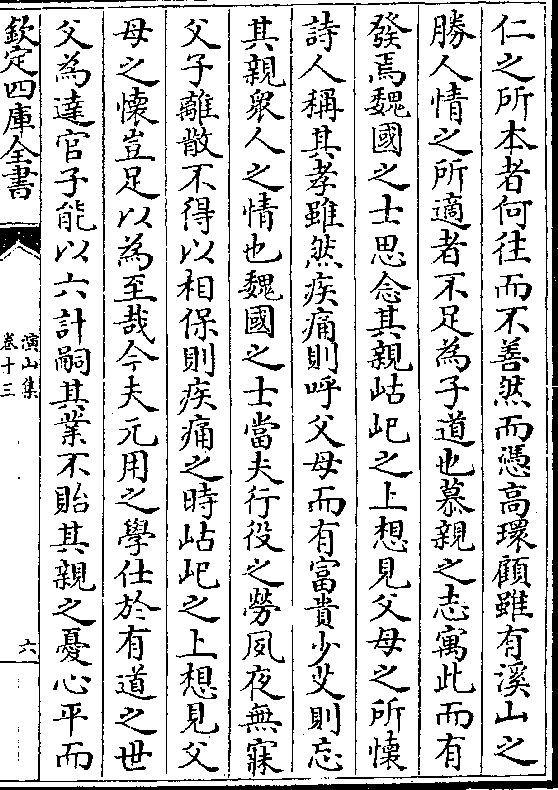 仁之所本者何往而不善然而憑高環顧雖有溪山之
勝人情之所適者不足為子道也慕親之志寓此而有
發焉魏國之士思念其親岵屺之上想見父母之所懐
詩人稱其孝雖然疾痛則呼父母而有富貴少艾則忘
其親衆人之情也魏國之士當夫行役之勞夙夜無寐
父子離散不得以相保則疾痛之時岵屺之上想見父
母之懐豈足以為至哉今夫元用之學仕於有道之世
父為達官子能以六計嗣其業不貽其親之憂心平而
欽定四庫全書
演山集
卷十三
六